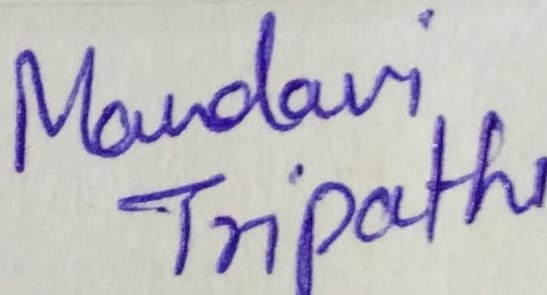 Mandavi
Tripathi